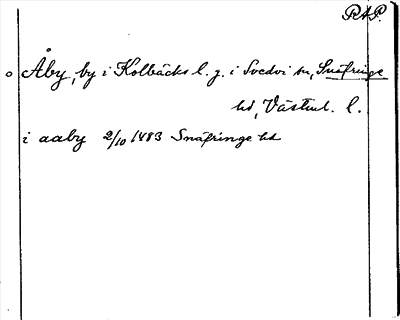 RAP.
o Åby, by i Kolbäcks l. g. i Svedvi sn, Snäfringe
hd, Västml. l.
i aaby 2/10 1483 Snäfringe hd